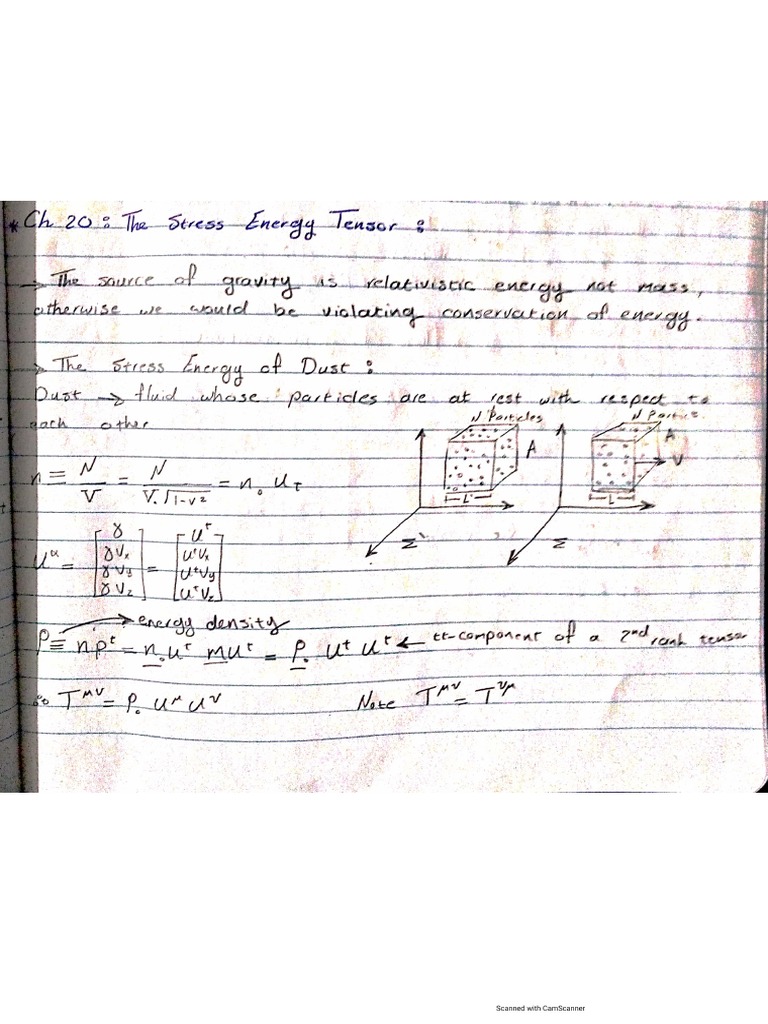 * Ch 20: The Stress Energy Tensor:
→ The source of gravity is relativistic energy not mass,
otherwise we would be violating conservation of energy.
→ The Stress Energy of Dust:
Dust → fluid whose particles are at rest with respect to
each other
N Particles
A
L
Σ'
N Partic
A
V
L
Σ
n ≡ N/V = N/(V₀√(1-v²)) = n₀ u_t
u^α = [γ, γv_x, γv_y, γv_z] = [u^t, u^t v_x, u^t v_y, u^t v_z]
→ energy density
ρ ≡ n p^t = n₀ u^t m u^t = ρ₀ u^t u^t ← tt-component of a 2nd rank tensor
∴ T^μν = ρ₀ u^μ u^ν Note T^μν = T^νμ
Scanned with CamScanner